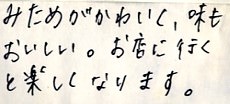 みためがかわいく、味も
おいしい。お店に行く
と楽しくなります。